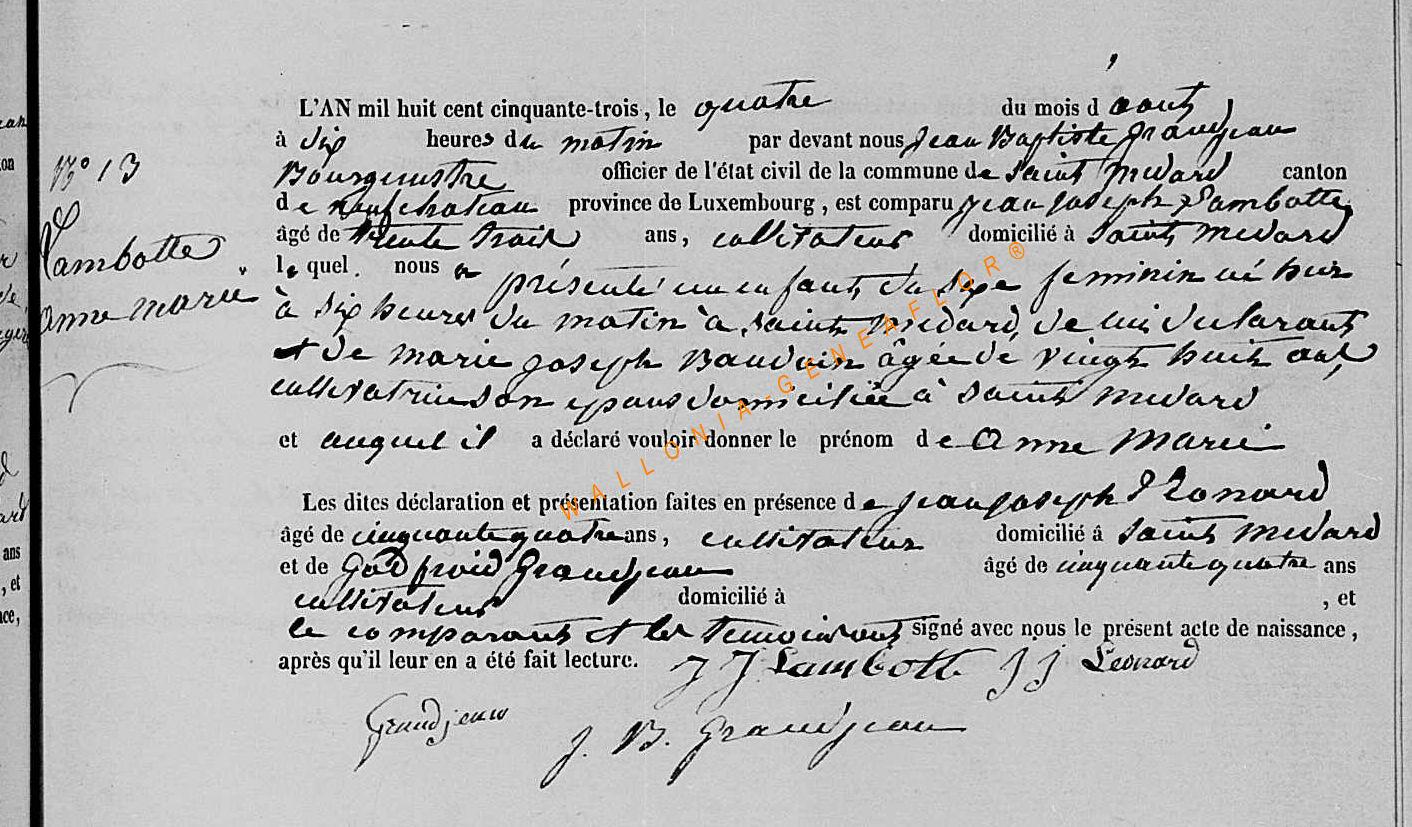 L'AN mil huit cent cinquante-trois, le quatre du mois d'aout,
à six heures du matin par devant nous Jean Baptiste Grandjean
Bourgmestre officier de l'état civil de la commune de Saint Medard canton
de neufchateau province de Luxembourg, est comparu Jean Joseph Lambotte
âgé de trente trois ans, cultivateur domicilié à Saint Medard
le quel nous a présenté un enfant du sexe feminin né hier
à six heures du matin à Saint Medard, de lui declarant
et de marie joseph Baudoin âgée de vingt huit ans,
cultivatrice son epouse domiciliée à Saint Medard
et auquel il a déclaré vouloir donner le prénom de Anne Marie
Les dites déclaration et présentation faites en présence de Jean Joseph Leonard
âgé de cinquante quatre ans, cultivateur domicilié à Saint Medard
et de Godfroid Grandjean âgé de cinquante quatre ans
cultivateur domicilié à , et
le comparant et les temoins ont signé avec nous le présent acte de naissance,
après qu'il leur en a été fait lecture. J J Lambotte J J Leonard
Grandjean J. B. Grandjean
N° 13
Lambotte
anne marie
WALLONIA-GENEAFLOR®